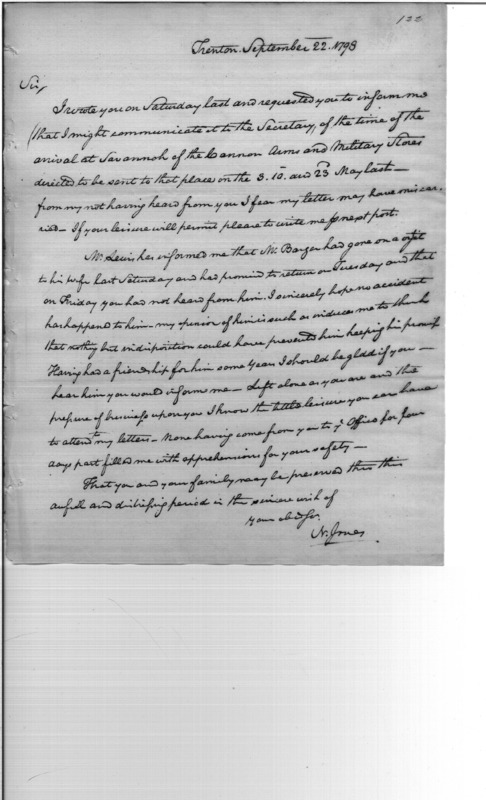 122
Trenton. September 22. 1798
Sir,
I wrote you on Saturday last and requested you to inform me
(that I might communicate it to the Secretary, of the time of the
arival at Savannah of the Cannon Arms and Military Stores
directed to be sent to that place on the 3. 10. and 23 May last —
from my not having heard from you I fear my letter may have miscar-
ried — If your leisure will permit please to write me next post.
Mr Lewis has informed me that Mr. Barger had gone on a visit
to his wife last Saturday and had promised to return on Tuesday and that
on Friday you had not heard from him. I sincerely hope no accident
has happend to him — my opinion of him is such as induces me to think
that nothing but indisposition could have prevented him keeping his promise
Having had a friendship for him some years I should be glad if you —
hear him you would inform me — Left alone as you are and the
pressure of business upon you I know the little leisure you can have
to attend to my letters — None having come from you to ye Office for four
days past filled me with apprehensions for your safety —
That you and your family may be preserved thro this
awfull and distressing period is the sincere wish of
your ob Ser
N. Jones